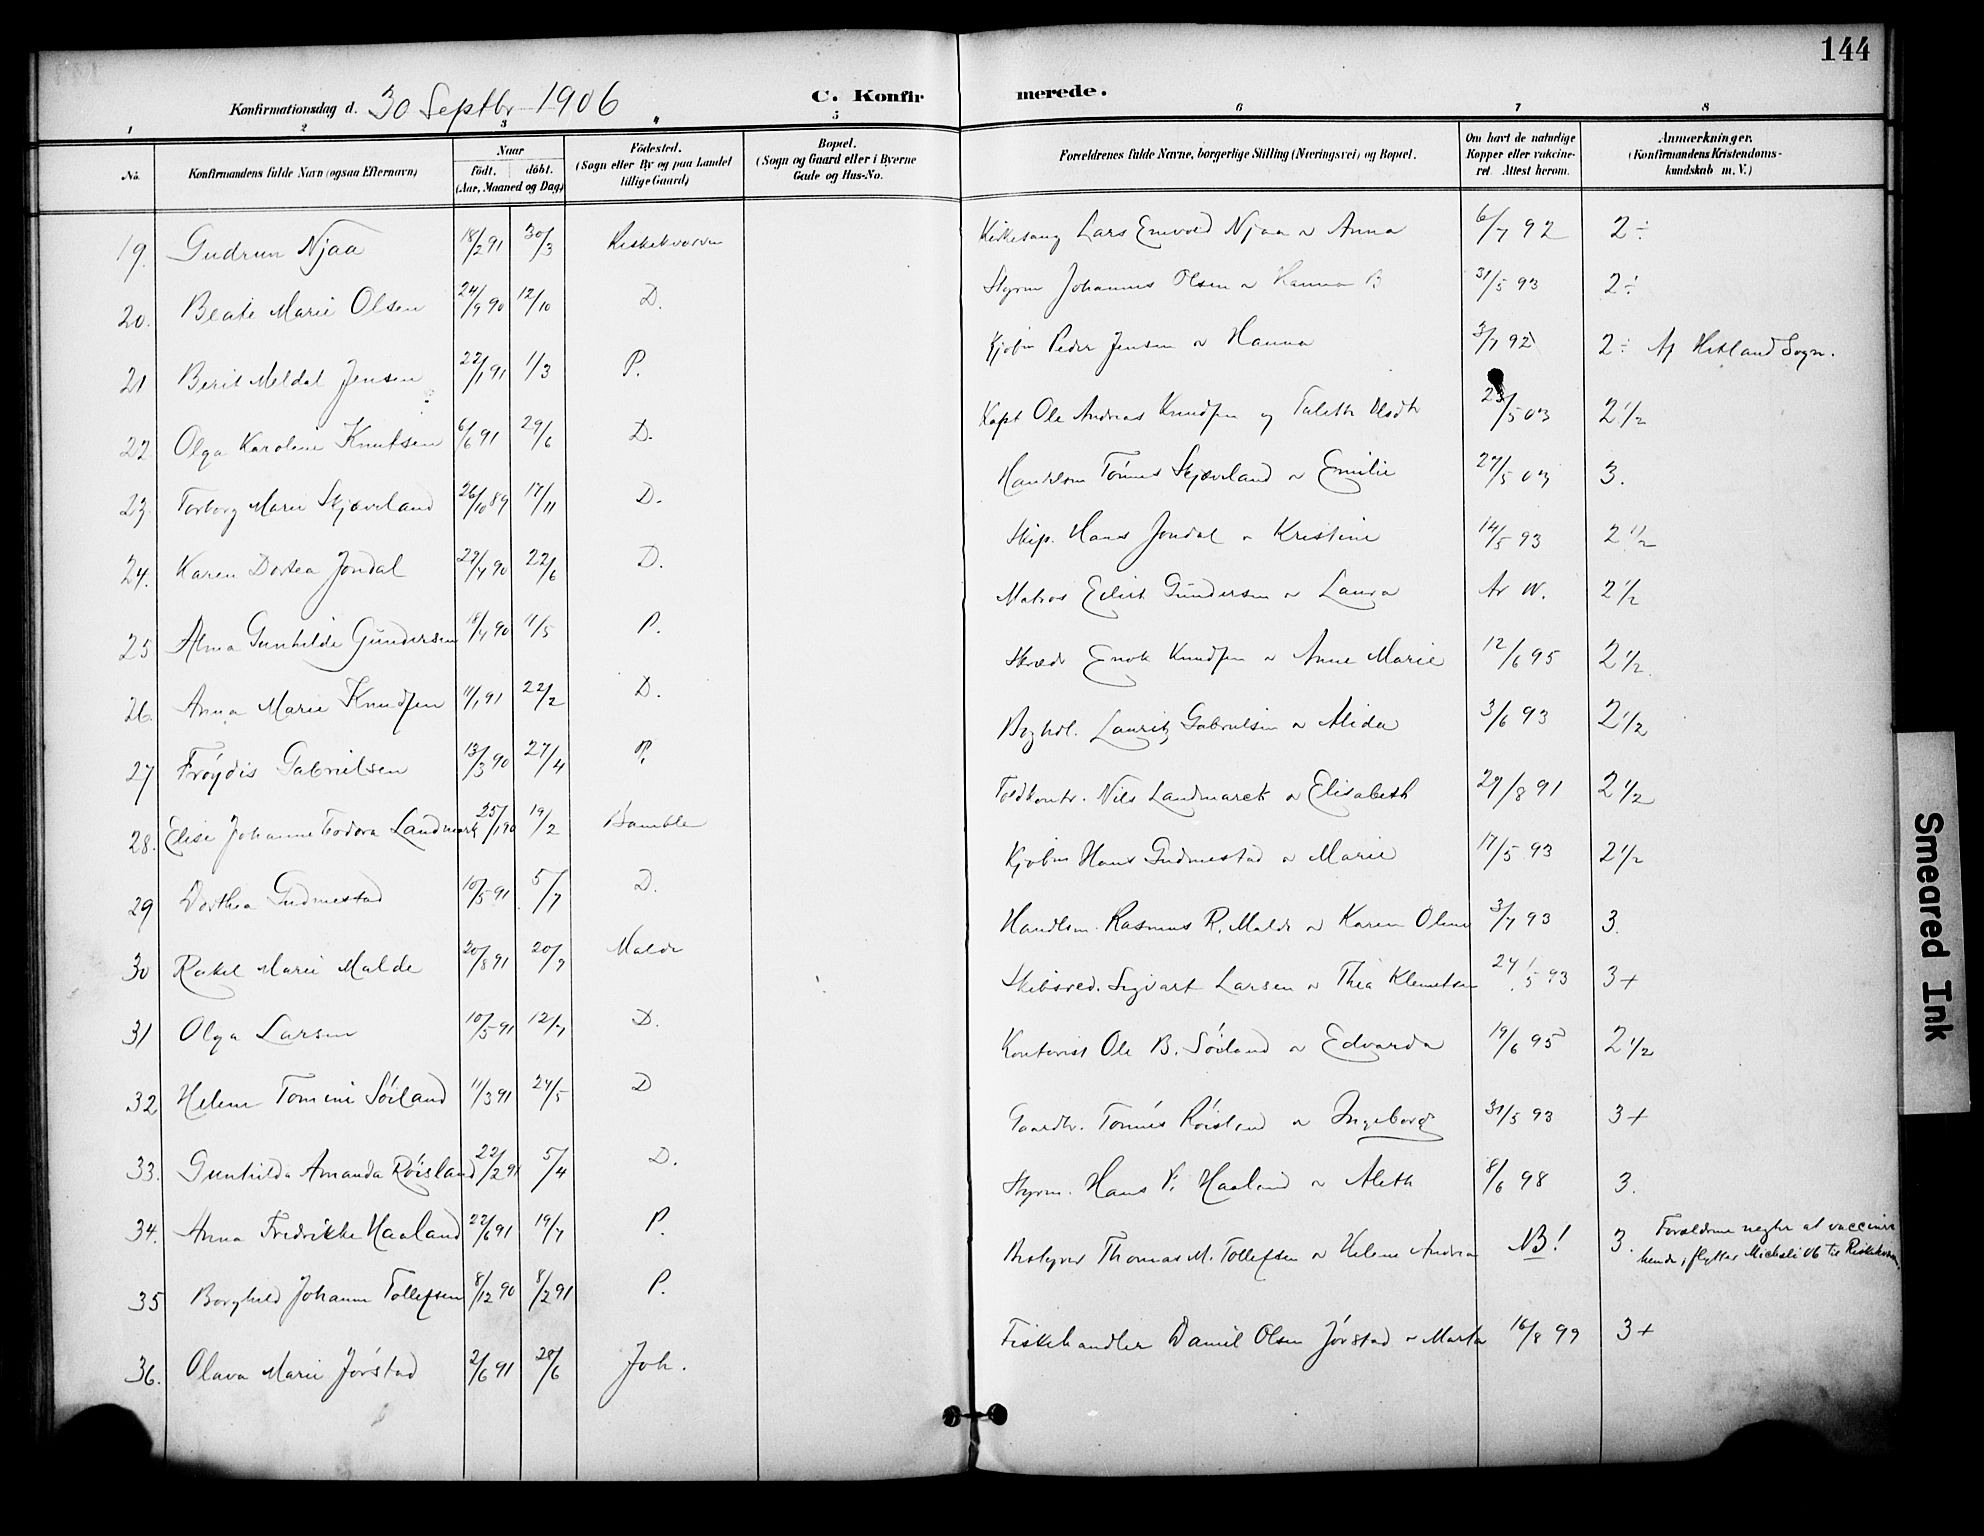 144
Konfirmationsdag d. 30 Septbr 1906 C. Konfir merede.
1 2 3 4 5 6 7 8
No. Konfirmandens fulde Navn (ogsaa Efternavn) Naar födt. döbt. (Aar, Maaned og Dag) Födested. (Sogn eller By og paa Landet tillige Gaard) Bopæl. (Sogn og Gaard eller i Byerne Gade og Hus-No. Forældrenes fulde Navne, borgerlige Stilling (Næringsvei) og Bopæl. Om havt de naturlige Kopper eller vakcineret. Attest herom. Anmærkninger. (Konfirmandens Kristendomskundskab m. V.)
19. Gudrun Njaa 18/2 91 30/3 Lars Njaa Anna 6/7 92 2÷
20. Beate Marie Olsen 24/9 90 12/10 D. Styrm Johannes Olsen Hanna B 31/5 93 2÷
21 Berit Meldal Jensen 22/1 91 1/3 P. Kjøbm Peder Jensen Hanna 3/7 92 2÷ Af Hetland Sogn.
22 Olga Karoline Knutsen 6/6 91 29/6 D. Kapt Ole Andreas Knudsen og 23/5 03 2 1/2
23. Torborg Marie Skjæveland 26/10 89 17/11 D. Handelsm Tönnes Skjæveland Emilie 27/5 03 3.
24. Karen Dortea Jondal 29/4 90 22/6 D. Skip. Hans Jondal Kristine 14/5 93 2 1/2
25 Alma Gunhilde Gundersen 18/4 90 11/5 P. Matros Eilert Gundersen Laura Ar W. 2 1/2
26. Anna Marie Knudsen 11/1 91 22/2 D. Skrædr Enok Knudsen Anne Marie 12/6 95 2 1/2
27 Fröydis Gabrielsen 13/3 90 27/4 P. Boghdl. Lauritz Gabrielsen Alida 3/6 93 2 1/2
28. Elise Johanne Todora Landmark 25/1 90 19/2 Bamble Toldkontr. Nils Landmarck Elisabeth 29/8 91 2 1/2
29 Dorthea Gudmestad 10/5 91 5/7 D. Kjøbm Hans Gudmestad Marie 17/5 93 2 1/2
30 Rakel Marie Malde 20/8 91 20/9 Malde Handlsm. Rasmus R. Malde Karen Oline 3/7 93 3.
31 Olga Larsen 10/5 91 12/7 D. Skibsred. Sigvart Larsen Thea Klemetsen 24/5 93 3+
32 Helene Tomine Söiland 11/3 91 24/5 D Kontorist Ole B. Söiland Edvarda 19/6 95 2 1/2
33. Gunhilda Amanda Röisland 22/2 91 5/4 D. Gaardbr. Tönnes Röisland Ingeborg 31/5 93 3+
34. Anna Fredrikke Haaland 22/6 91 19/7 P. Styrm. Hans Haaland Aleth 8/6 98 3.
35 Borghild Johanne Tollefsen 8/12 90 8/2 91 P. Bestyrer Thomas M. Tollefsen Helene Andrea NB! 3. Forældrene negter at vaccinere hende, flytter Micheli 06 til
36. Olava Marie Jörstad 2/6 91 28/6 Joh. Fiskehandler Daniel Olsen Jörstad Marta 16/8 99 3+
Smeared Ink